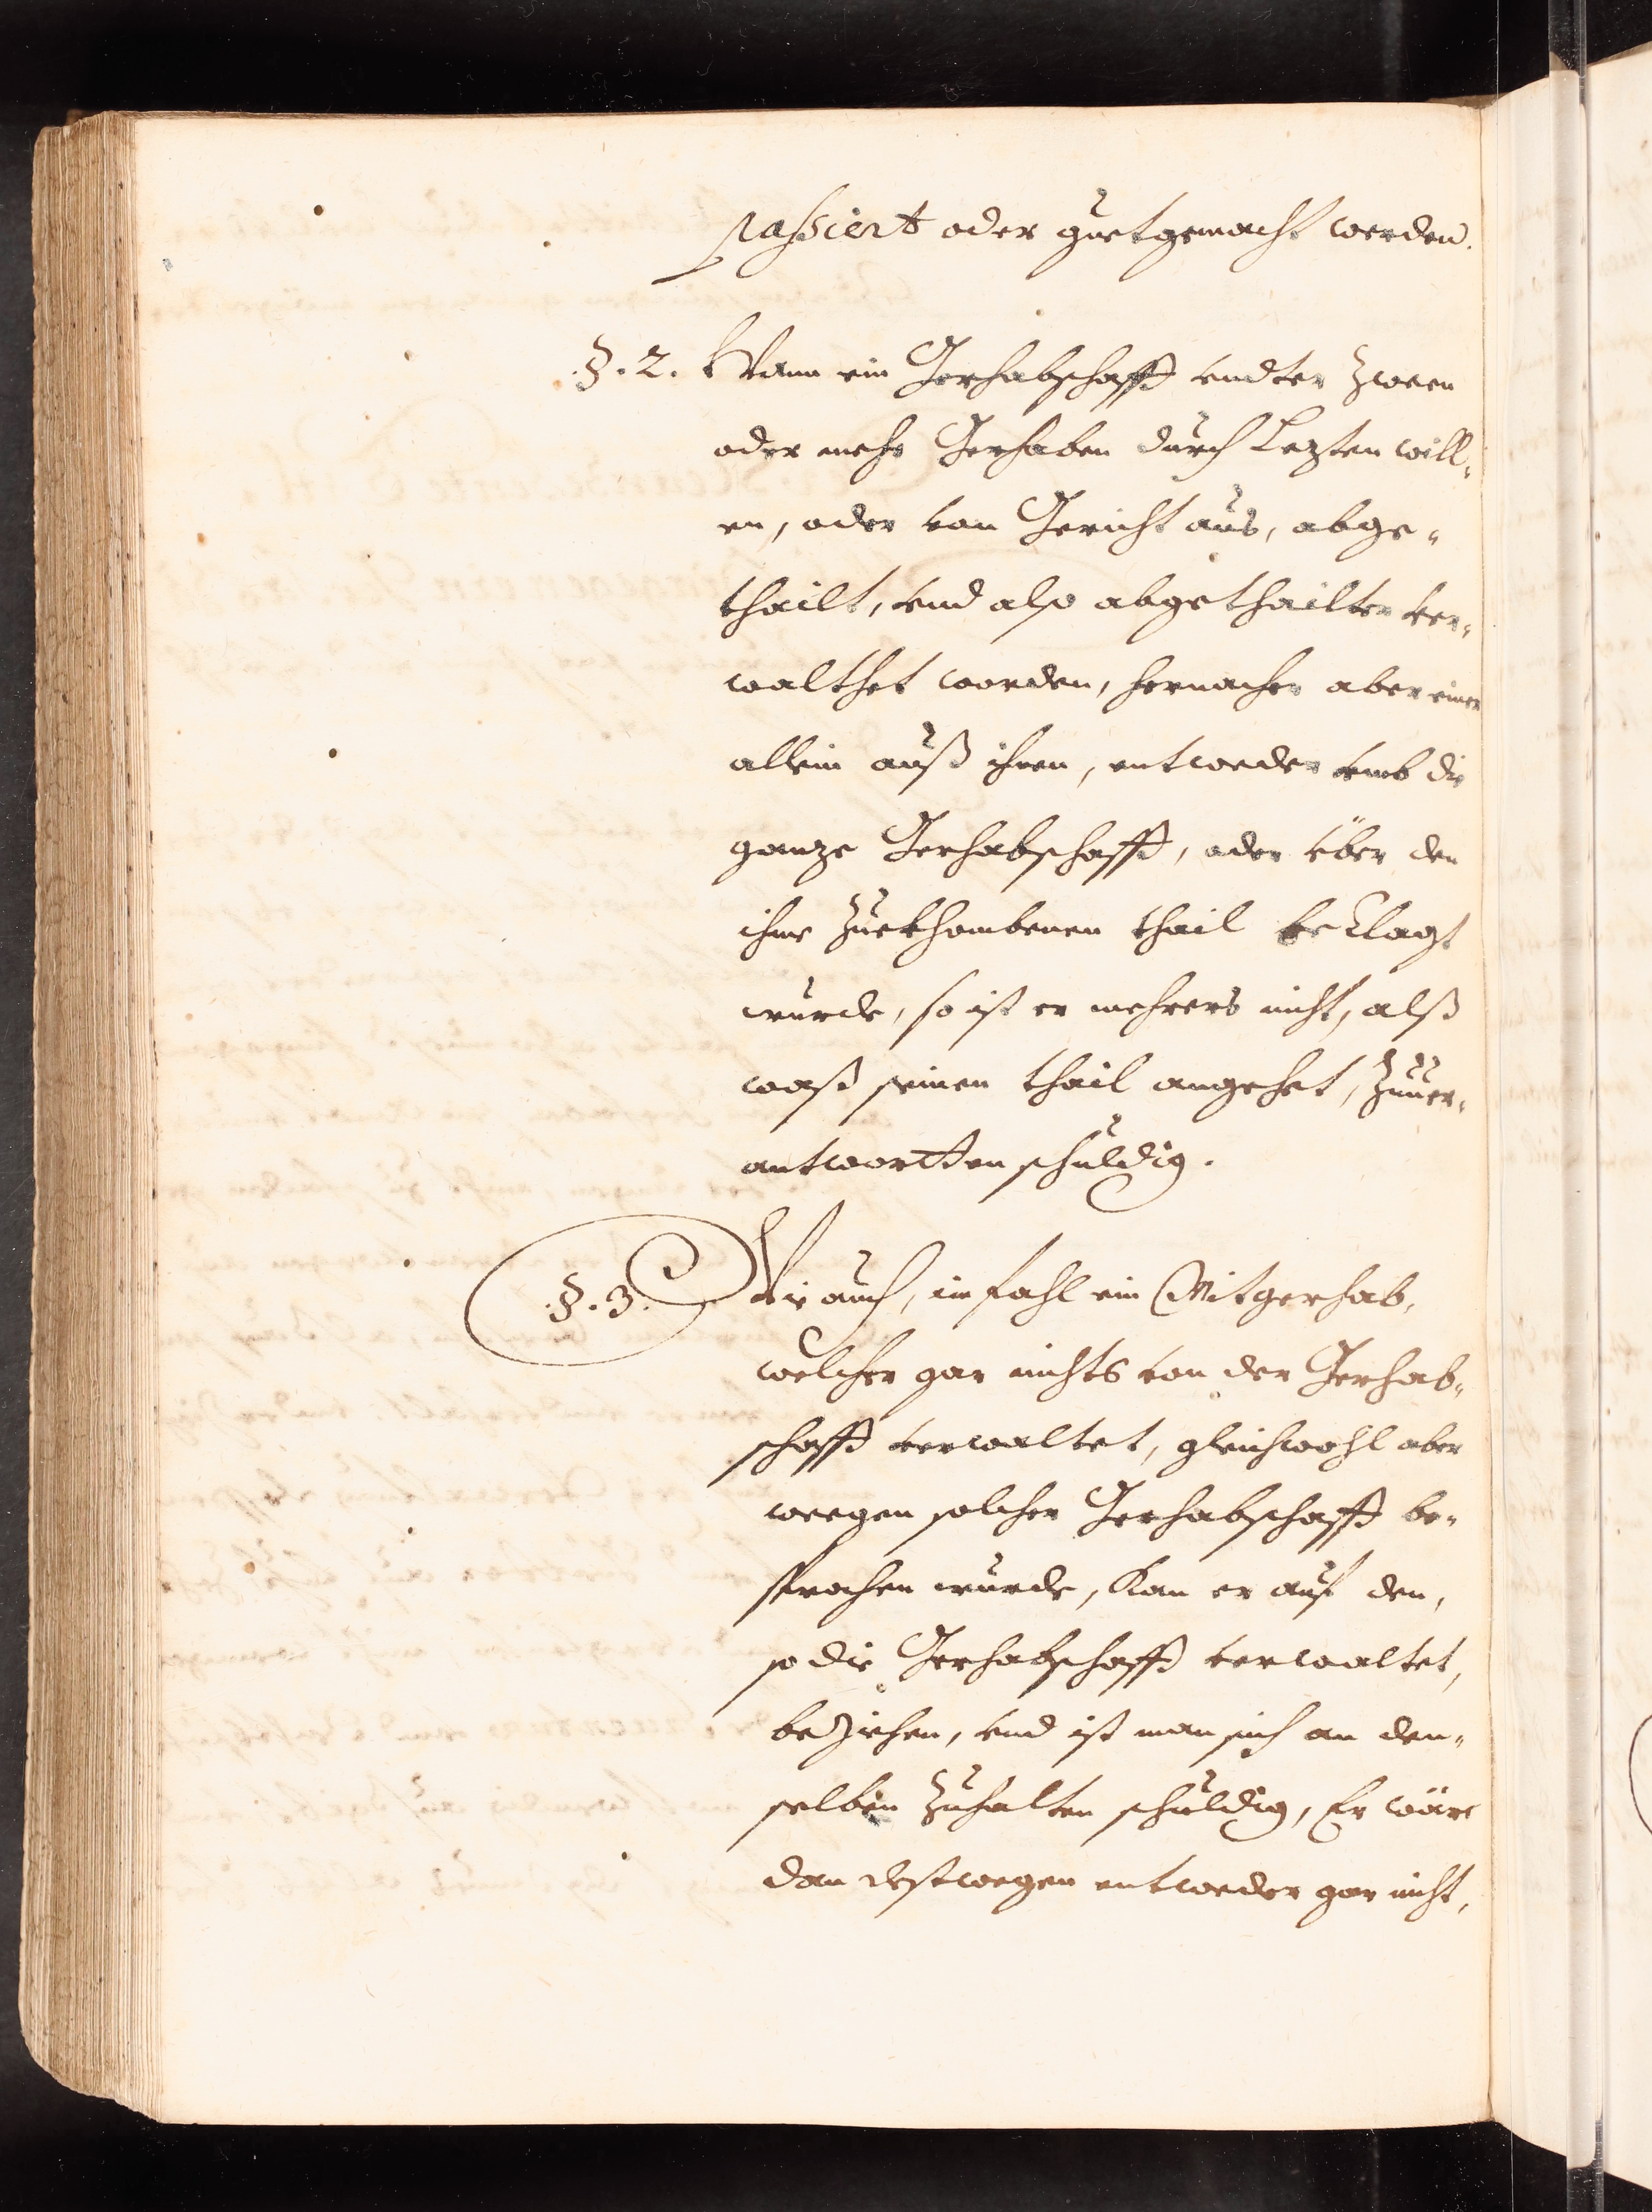 passiert oder guetgemacht werden.
§. 2. Wann ein Gerhabschafft vndter zween
oder mehr Gerhaben durch Lezten will„
en, oder von Gericht aus, abge„
thailt, vnd also abgethailter ver„
walthet worden, hernacher aber einer
allein auß ihnen, entweder vmb die
ganze Gerhabschafft, oder über den
ihme zuekhombenen thail beclagt
wurde, so ist er mehrers nicht, alß
waß seinen thail angehet, zuuer„
antwortten schuldig.
§. 3. Wie auch, im fahl ein Mitgerhab,
welcher gar nichts von der Gerhab„
schafft verwaltet, gleichwohl aber
weegen solcher Gerhabschafft be„
sprochen wurde, Kan er auf den,
so die Gerhabschafft verwaltet,
beziehen, vnd ist man sich an den„
selben zuhalten schuldig, Er wäre
dan destwegen entweder gar nicht,